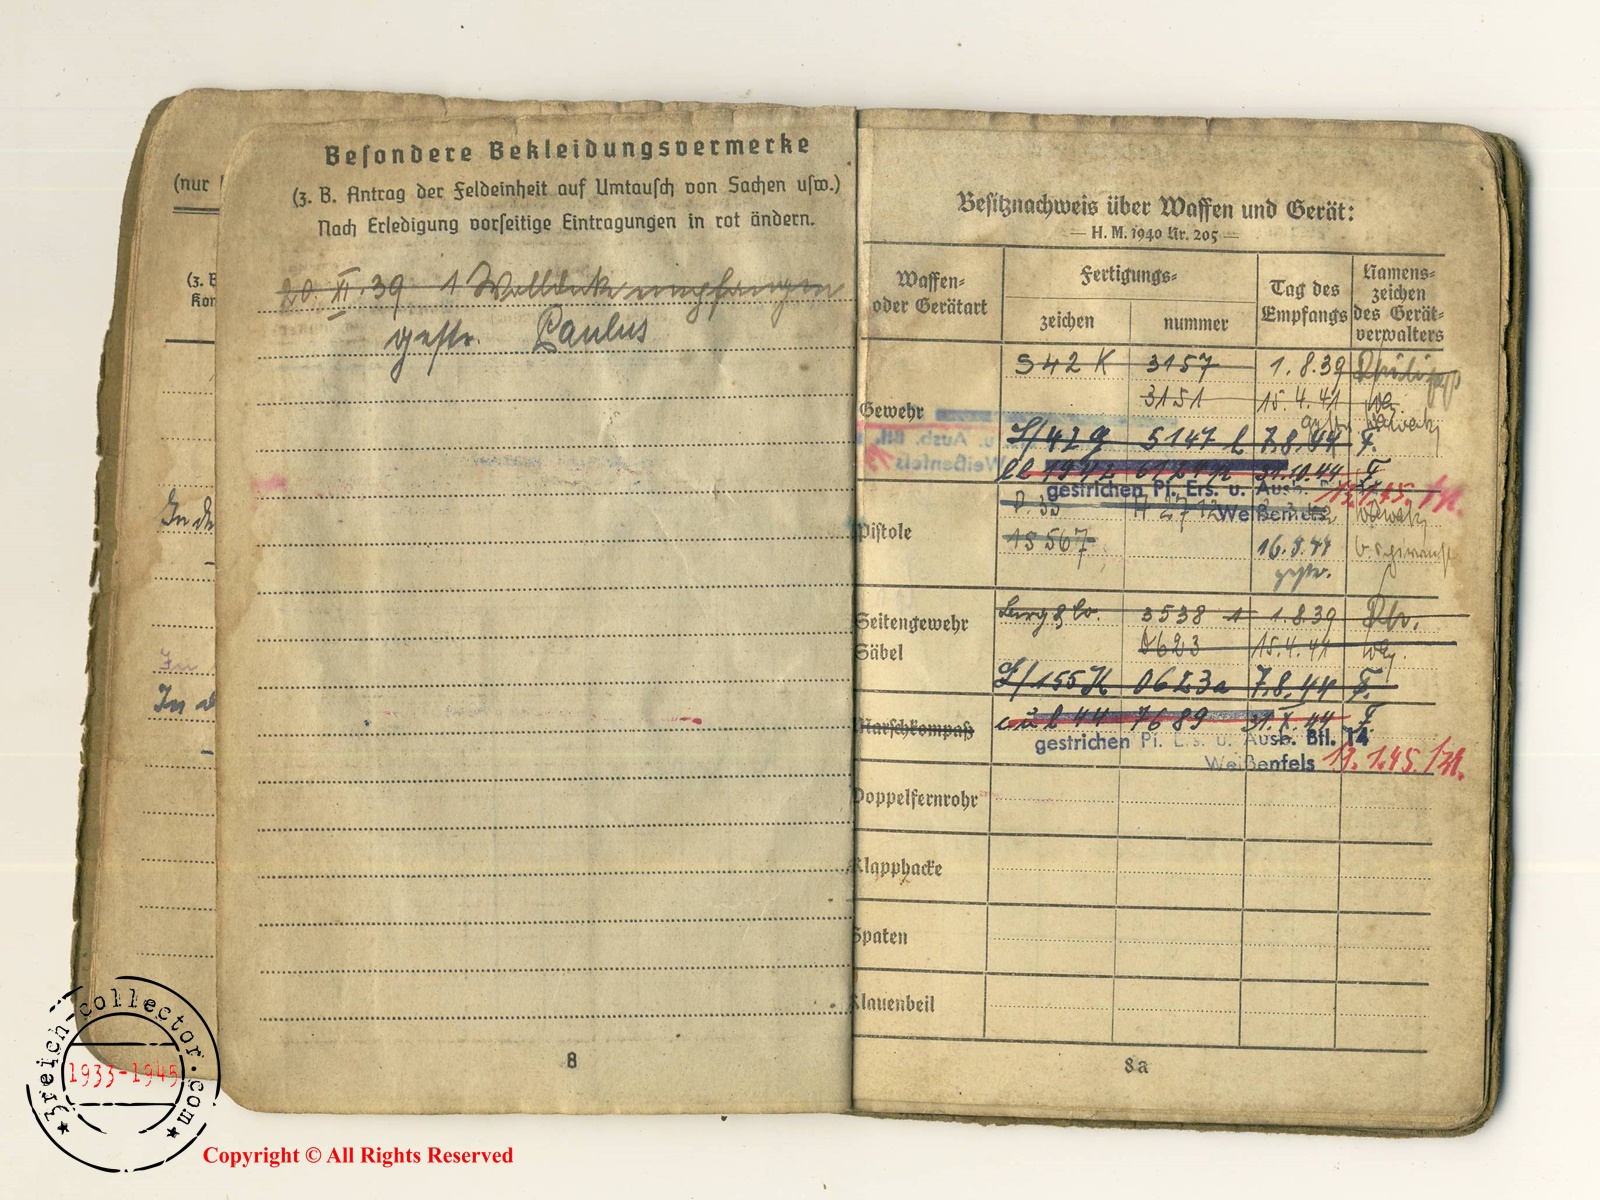 (nur
(z. B
Kon
In de
In d
Besondere Bekleidungsvermerke
(z. B. Antrag der Feldeinheit auf Umtausch von Sachen usw.)
Nach Erledigung vorseitige Eintragungen in rot ändern.
20. XI. 39 1 Wolldecke empfangen
gestr. Paulus
8
Besitznachweis über Waffen und Gerät:
— H. M. 1940 Nr. 205 —
Waffen- oder Gerätart
Fertigungs-
zeichen
nummer
Tag des Empfangs
Namens- zeichen des Gerät- verwalters
Gewehr
S 42 K 3157 1.8.39
3151 15.4.41
S/42 g 5147 l 7.8.44 F.
31.10.44 F
gestrichen Pi. Ers. u. Ausb.
Weißenfels 13.1.45.
Pistole
15 567 16.8.44
gestr.
Seitengewehr
Säbel
Berg & Co. 3538 1.8.39
0623 15.4.41
S/155 K 0623a 7.8.44 F.
Marschkompaß
cül 44 7689 31.X.44 F
gestrichen Pi. Ers. u. Ausb. Btl. 14
Weißenfels 13.1.45.
Doppelfernrohr
Klapphacke
Spaten
Klauenbeil
8a
3reich-collector.com
1933-1945
Copyright © All Rights Reserved